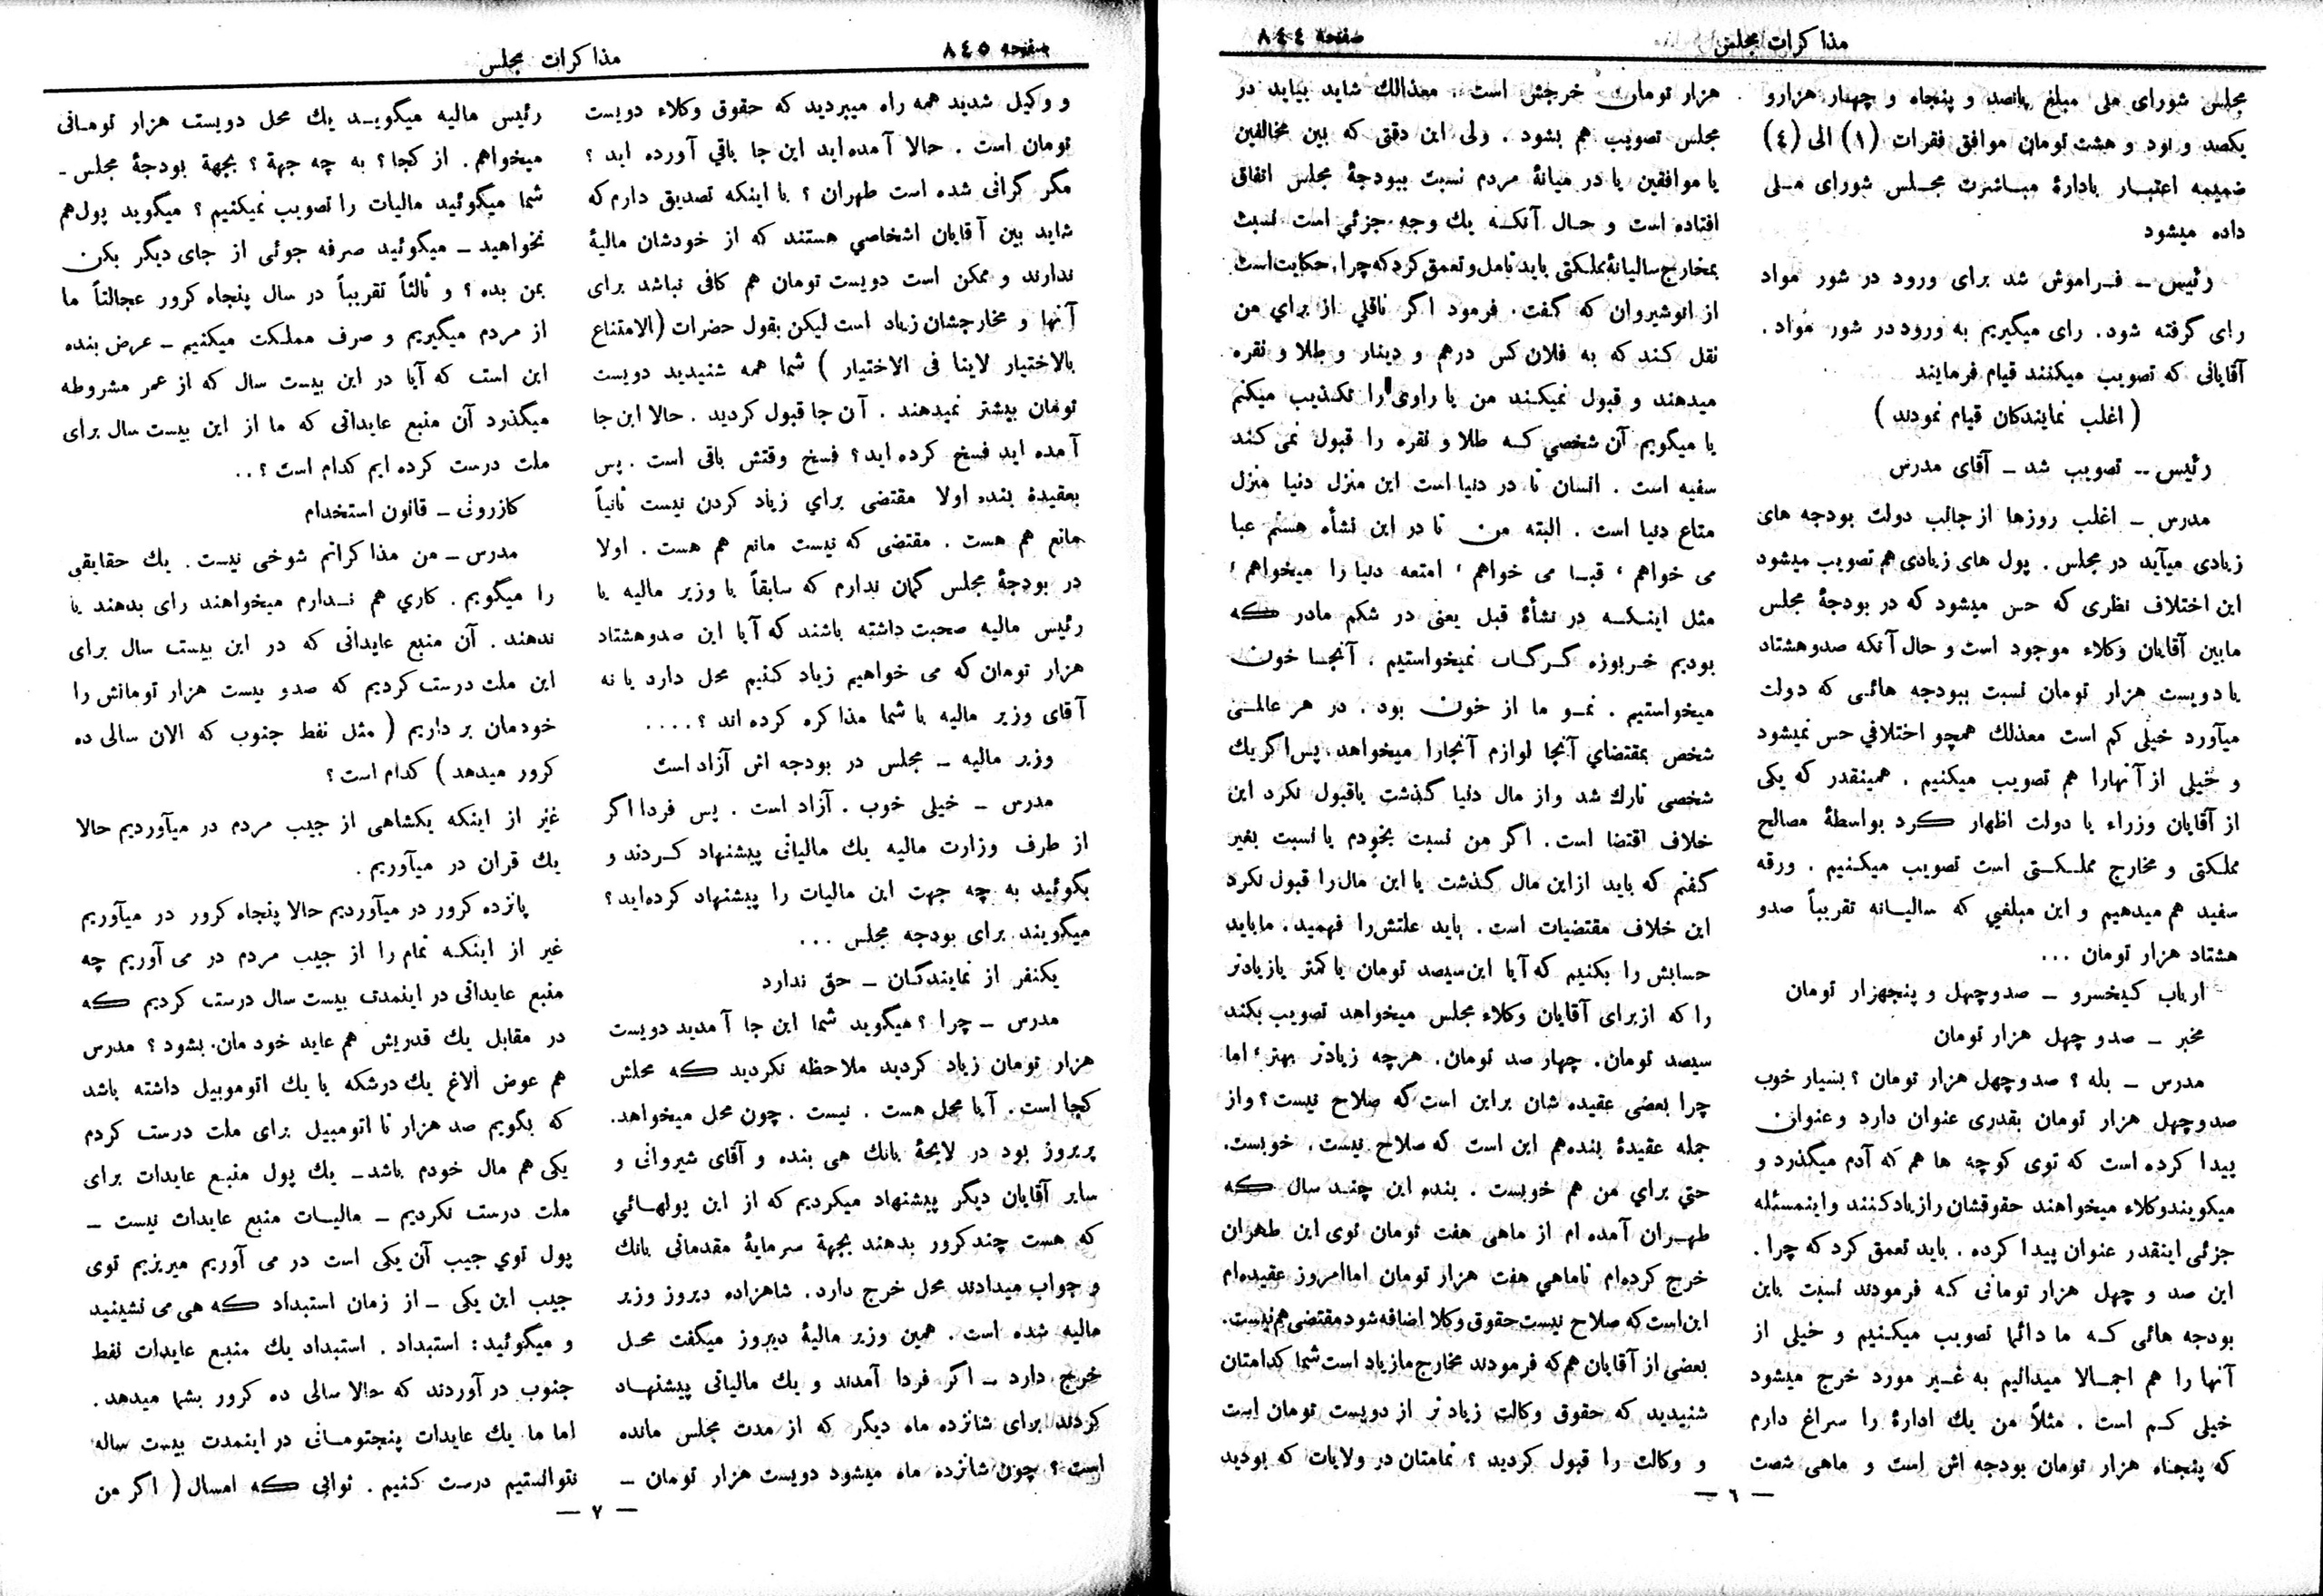 صفحه ٨٤٤
مذاکرات مجلس
مجلس شورای ملی مبلغ پانصد و پنجاه و چهار هزار و
یکصد و نود و هشت تومان موافق فقرات (١) الی (٤)
ضمیمه اعتبار بادارهٔ مباشرت مجلس شورای ملی
داده میشود
رئیس ــ فراموش شد برای ورود در شور مواد
رای گرفته شود. رای میگیریم به ورود در شور مواد.
آقایانی که تصویب میکنند قیام فرمایند
( اغلب نمایندگان قیام نمودند )
رئیس ــ تصویب شد ــ آقای مدرس
مدرس ــ اغلب روزها از جانب دولت بودجه های
زیادی میآید در مجلس . پول های زیادی هم تصویب میشود
این اختلاف نظری که حس میشود که در بودجهٔ مجلس
مابین آقایان وکلاء موجود است و حال آنکه صد و هشتاد
یا دویست هزار تومان نسبت ببودجه هائی که دولت
میآورد خیلی کم است معذلك همچو اختلافی حس نمیشود
و خیلی از آنهارا هم تصویب میکنیم . همینقدر که یکی
از آقایان وزراء یا دولت اظهار کرد بواسطهٔ مصالح
مملکتی و مخارج مملکتی است تصویب میکنیم . ورقه
سفید هم میدهیم و این مبلغی که سالیانه تقریباً صدو
هشتاد هزار تومان ...
ارباب کیخسرو ــ صدوچهل و پنجهزار تومان
مخبر ــ صدو چهل هزار تومان
مدرس ــ بله ؟ صدوچهل هزار تومان ؟ بسیار خوب
صدوچهل هزار تومان بقدری عنوان دارد و عنوان
پیدا کرده است که توی کوچه ها هم که آدم میگذرد و
میگویند وکلاء میخواهند حقوقشان را زیاد کنند و اینمسئله
جزئی اینقدر عنوان پیدا کرده . باید تعمق کرد که چرا .
این صد و چهل هزار تومانی که فرمودند نسبت باین
بودجه هائی که ما دائما تصویب میکنیم و خیلی از
آنها را هم اجمالا میدانیم به غیر مورد خرج میشود
خیلی کم است . مثلاً من یك ادارهٔ را سراغ دارم
که پنجاه هزار تومان بودجه اش است و ماهی شصت
هزار تومان خرجش است . معذالك شاید بیاید در
مجلس تصویب هم بشود . ولی این دقتی که بین مخالفین
یا موافقین یا در میانهٔ مردم نسبت ببودجهٔ مجلس اتفاق
افتاده است و حال آنکه یك وجه جزئی است نسبت
بمخارج سالیانهٔ مملکتی باید تأمل و تعمق کرد که چرا . حکایت است
از انوشیروان که گفت . فرمود اگر ناقلی از برای من
نقل کند که به فلان کس درهم و دینار و طلا و نقره
میدهند و قبول نمیکند من یا راوی را تکذیب میکنم
یا میگویم آن شخصی که طلا و نقره را قبول نمی کند
سفیه است . انسان تا در دنیا است این منزل دنیا منزل
متاع دنیا است . البته من تا در این نشأه هستم عبا
می خواهم ، قبا می خواهم ، امتعه دنیا را میخواهم ،
مثل اینکه در نشأهٔ قبل یعنی در شکم مادر که
بودیم خربوزه گرگاب نمیخواستیم . آنجا خون
میخواستیم . نمو ما از خون بود . در هر عالمی
شخص بمقتضای آنجا لوازم آنجارا میخواهد . پس اگر یك
شخصی تارك شد و از مال دنیا گذشت یا قبول نکرد این
خلاف اقتضا است . اگر من نسبت بخودم یا نسبت بغیر
گفتم که باید از این مال گذشت یا این مال را قبول نکرد
این خلاف مقتضیات است . باید علتش را فهمید . ما باید
حسابش را بکنیم که آیا این سیصد تومان یا کمتر یا زیادتر
را که از برای آقایان وکلاء مجلس میخواهد تصویب بکند
سیصد تومان . چهار صد تومان . هرچه زیادتر بهتر ، اما
چرا بعضی عقیده شان بر این است که صلاح نیست ؟ و از
جمله عقیدهٔ بنده هم این است که صلاح نیست . خوبست .
حتی برای من هم خوبست . بنده این چند سال که
طهران آمده ام از ماهی هفت تومان توی این طهران
خرج کرده‌ام تا ماهی هفت هزار تومان اما امروز عقیده‌ام
این است که صلاح نیست حقوق وکلا اضافه شود مقتضی هم نیست .
بعضی از آقایان هم که فرمودند مخارج ما زیاد است شما کدامتان
شنیدید که حقوق وکالت زیادتر از دویست تومان است
و وکالت را قبول کردید ؟ تمامتان در ولایات که بودید
— ٦ —
صفحه ٨٤٥
مذاکرات مجلس
و وکیل شدید همه راه میبردید که حقوق وکلاء دویست
تومان است . حالا آمده اید این جا باقی آورده اید ؟
مگر گرانی شده است طهران ؟ با اینکه تصدیق دارم که
شاید بین آقایان اشخاصی هستند که از خودشان مالیهٔ
ندارند و ممکن است دویست تومان هم کافی نباشد برای
آنها و مخارجشان زیاد است لیکن بقول حضرات (الامتناع
بالاختیار لاینا فی الاختیار ) شما همه شنیدید دویست
تومان بیشتر نمیدهند . آن جا قبول کردید . حالا این جا
آمده اید فسخ کرده اید ؟ فسخ وقتش باقی است . پس
بعقیدهٔ بنده اولا مقتضی برای زیاد کردن نیست ثانیاً
مانع هم هست . مقتضی که نیست مانع هم هست . اولا
در بودجهٔ مجلس گمان ندارم که سابقاً با وزیر مالیه یا
رئیس مالیه صحبت داشته باشند که آیا این صدوهشتاد
هزار تومان که می خواهیم زیاد کنیم محل دارد یا نه
آقای وزیر مالیه با شما مذاکره کرده اند ؟ ....
وزیر مالیه ــ مجلس در بودجه اش آزاد است
مدرس ــ خیلی خوب . آزاد است . پس فردا اگر
از طرف وزارت مالیه یك مالیاتی پیشنهاد کردند و
بگوئید به چه جهت این مالیات را پیشنهاد کرده‌اید ؟
میگویند برای بودجه مجلس ...
یکنفر از نمایندگان ــ حق ندارد
مدرس ــ چرا ؟ میگوید شما این جا آمدید دویست
هزار تومان زیاد کردید ملاحظه نکردید که محلش
کجا است . آیا محل هست . نیست . چون محل میخواهد.
پریروز بود در لایحهٔ بانك هی بنده و آقای شیروانی و
سایر آقایان دیگر پیشنهاد میکردیم که از این پولهائی
که هست چند کرور بدهند بجهة سرمایهٔ مقدماتی بانك
و جواب میدادند محل خرج دارد . شاهزاده دیروز وزیر
مالیه شده است . همین وزیر مالیهٔ دیروز میگفت محل
خرج دارد ــ اگر فردا آمدند و یك مالیاتی پیشنهاد
کردند برای شانزده ماه دیگر که از مدت مجلس مانده
است ؟ چون شانزده ماه میشود دویست هزار تومان ــ
رئیس مالیه میگوید یك محل دویست هزار تومانی
میخواهم . از کجا ؟ به چه جهة ؟ بجهة بودجهٔ مجلس -
شما میگوئید مالیات را تصویب نمیکنیم ؟ میگوید پول هم
نخواهید ــ میگوئید صرفه جوئی از جای دیگر بکن
بمن بده ؟ و ثالثاً تقریباً در سال پنجاه کرور عجالتاً ما
از مردم میگیریم و صرف مملکت میکنیم ــ عرض بنده
این است که آیا در این بیست سال که از عمر مشروطه
میگذرد آن منبع عایداتی که ما از این بیست سال برای
ملت درست کرده ایم کدام است ؟ ..
کازرونی ــ قانون استخدام
مدرس ــ من مذاکراتم شوخی نیست . یك حقایقی
را میگویم . کاری هم ندارم میخواهند رای بدهند یا
ندهند . آن منبع عایداتی که در این بیست سال برای
این ملت درست کردیم که صدو بیست هزار تومانش را
خودمان بر داریم ( مثل نفط جنوب که الان سالی ده
کرور میدهد ) کدام است ؟
غیر از اینکه یکشاهی از جیب مردم در میآوردیم حالا
یك قران در میآوریم .
پانزده کرور در میآوردیم حالا پنجاه کرور در میآوریم
غیر از اینکه تمام را از جیب مردم در می آوریم چه
منبع عایداتی در اینمدت بیست سال درست کردیم که
در مقابل یك قدریش هم عاید خودمان بشود ؟ مدرس
هم عوض الاغ یك درشکه یا یك اتوموبیل داشته باشد
که بگویم صد هزار تا اتومبیل برای ملت درست کردم
یکی هم مال خودم باشد ــ یك پول منبع عایدات برای
ملت درست نکردیم ــ مالیات منبع عایدات نیست ــ
پول توی جیب آن یکی است در می آوریم میریزیم توی
جیب این یکی ــ از زمان استبداد که هی می نشینید
و میگوئید : استبداد . استبداد یك منبع عایدات نفط
جنوب در آوردند که حالا سالی ده کرور بشما میدهد .
اما ما یك عایدات پنجتومانی در اینمدت بیست ساله
نتوانستیم درست کنیم . توانی که امسال ( اگر من
— ٧ —